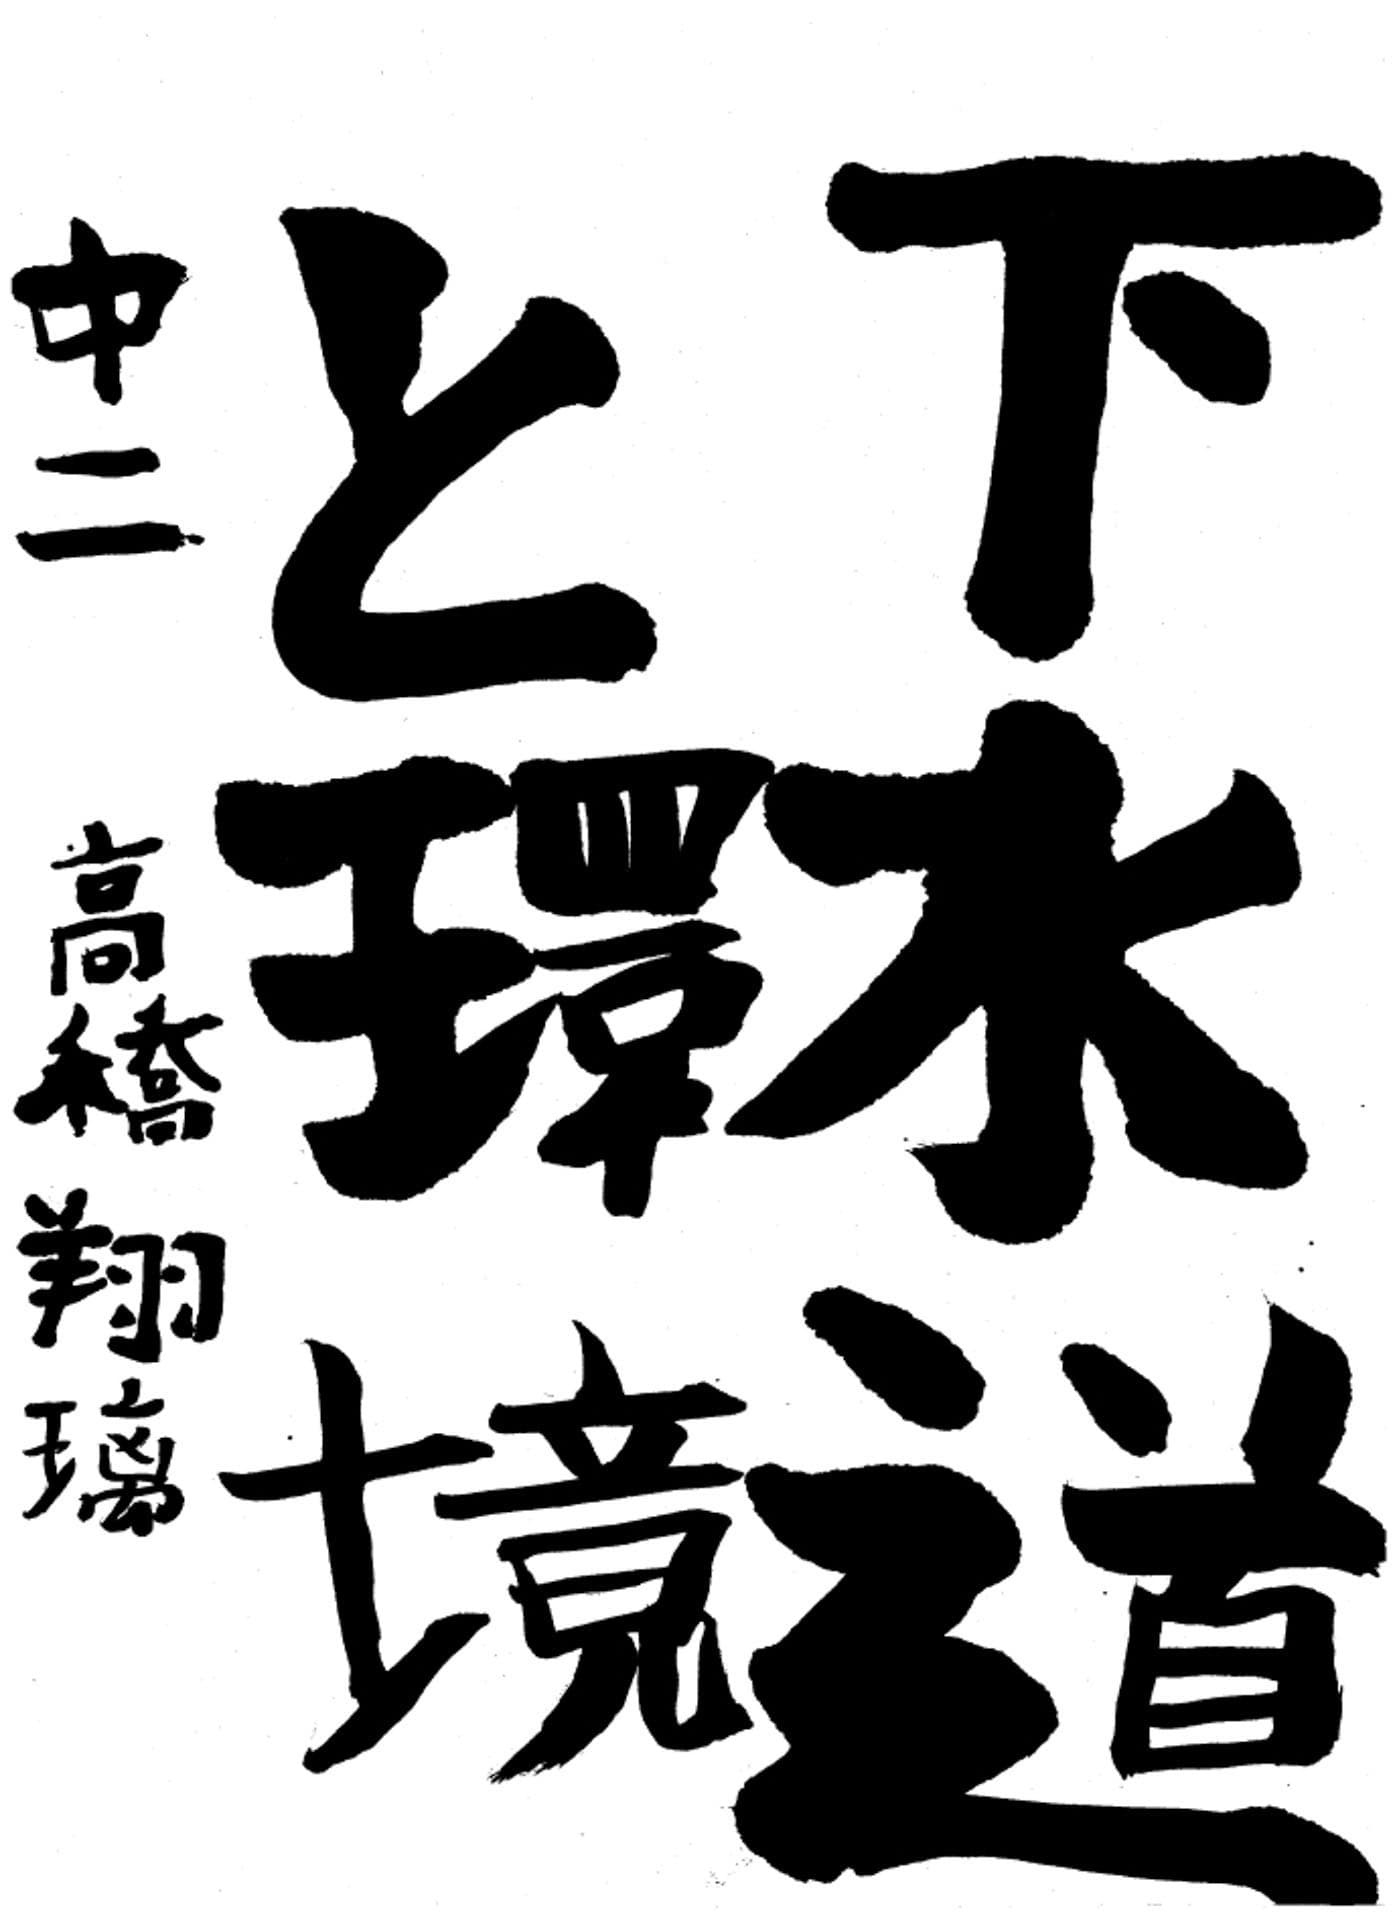 下水道
と環境
中二 高橋 翔璃